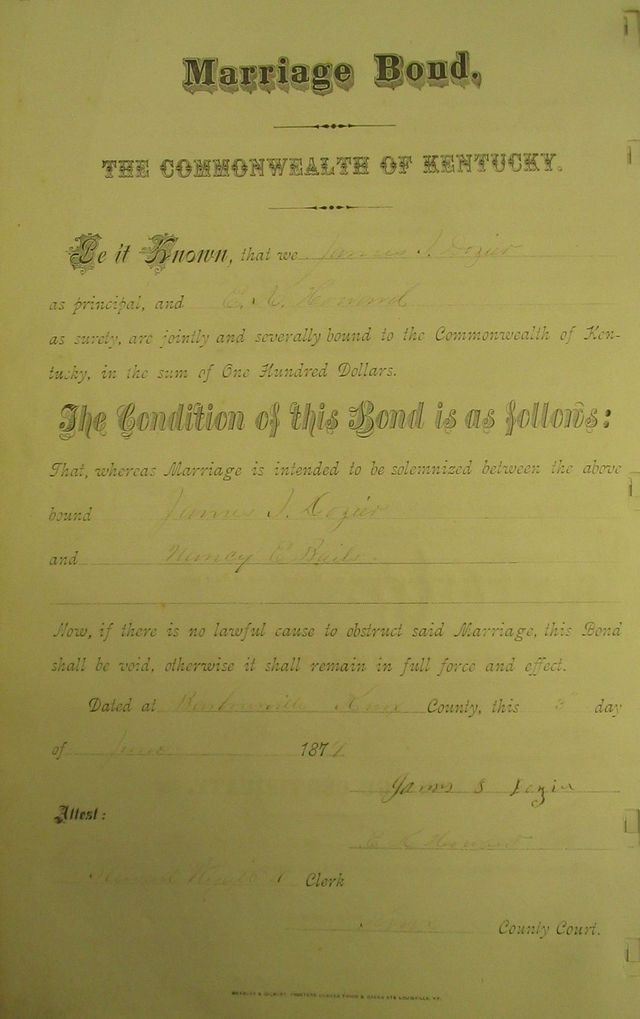 Marriage Bond.
THE COMMONWEALTH OF KENTUCKY.
Be it Known, that we James I. Dozier
as principal, and
as surety, are jointly and severally bound to the Commonwealth of Ken-
tucky, in the sum of One Hundred Dollars.
The Condition of this Bond is as follows:
That, whereas Marriage is intended to be solemnized between the above
bound James I. Dozier
and Nancy E.
Now, if there is no lawful cause to obstruct said Marriage, this Bond
shall be void, otherwise it shall remain in full force and effect.
Dated at Knox County, this 3d day
of June 187
James Dozier
Attest:
Clerk
Knox County Court.